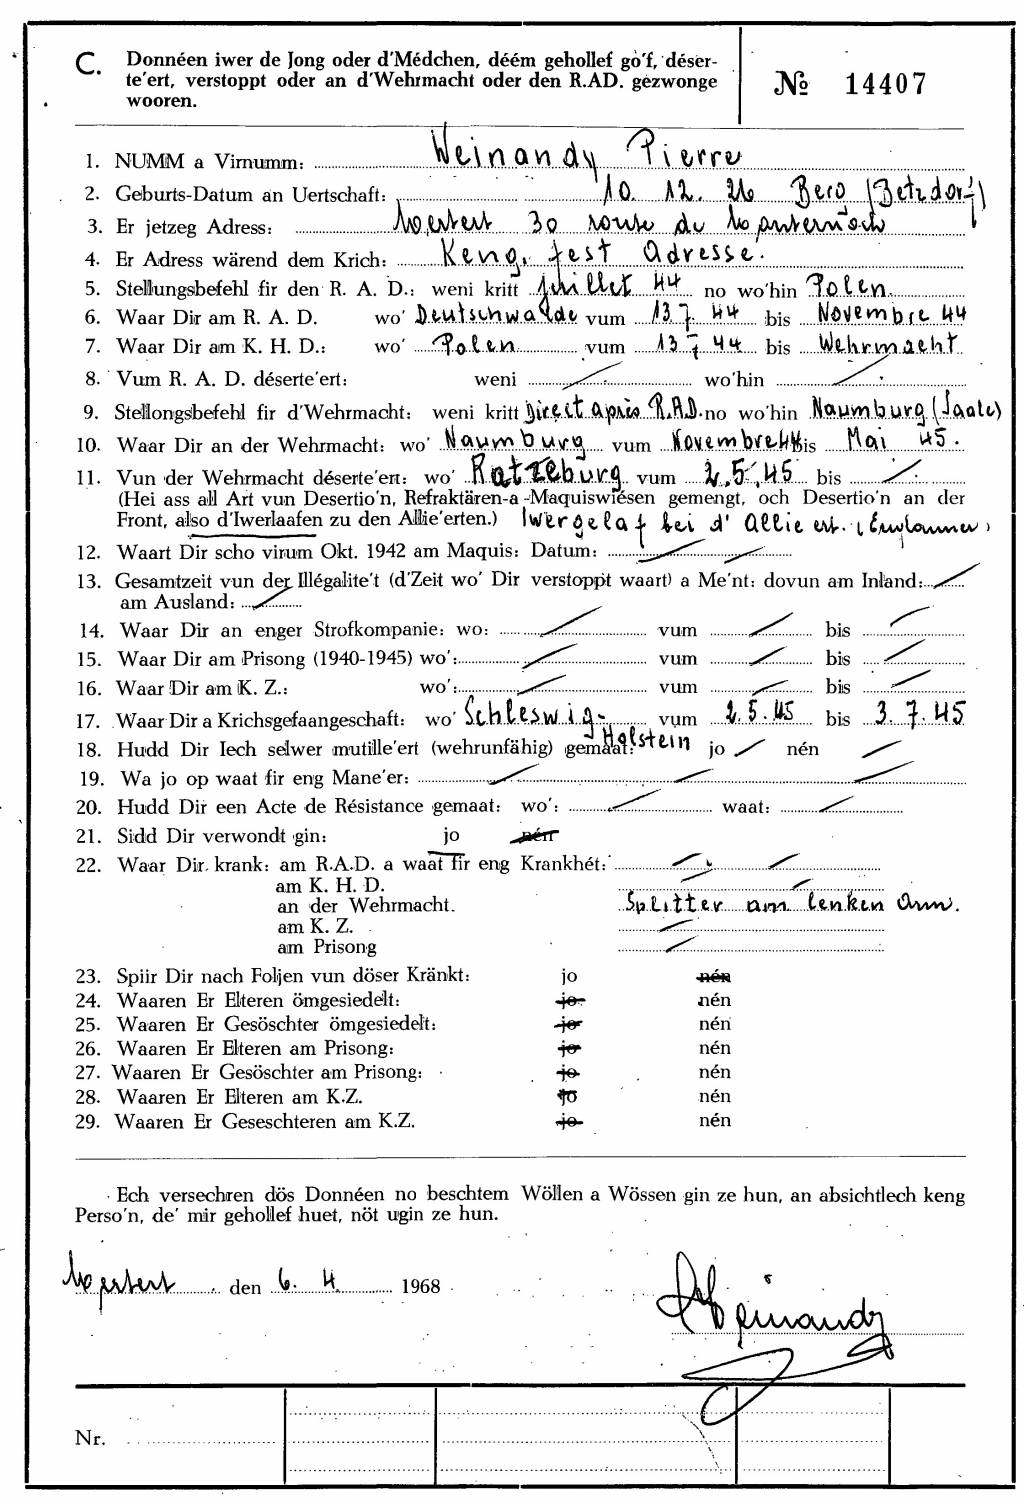 C. Donnéen iwer de Jong oder d'Médchen, déém gehollef go'f, déser-
te'ert, verstoppt oder an d'Wehrmacht oder den R.AD. gezwonge
wooren.
№ 14407
1. NUMM a Virnumm: Weinandy Pierre
2. Geburts-Datum an Uertschaft: 10. 12. 26 Berg (Betzdorf)
3. Er jetzeg Adress: Mertert 30 route de Manternach
4. Er Adress wärend dem Krich: Keng fest Adresse.
5. Stellungsbefehl fir den R. A. D.: weni kritt Juillet 44 no wo'hin Polen
6. Waar Dir am R. A. D. wo' Deutschwalde vum 13.7.44 bis Novembre 44
7. Waar Dir am K. H. D.: wo' Polen vum 13.7.44 bis Wehrmacht
8. Vum R. A. D. déserte'ert: weni / wo'hin /
9. Stellongsbefehl fir d'Wehrmacht: weni kritt Direct après R.A.D. no wo'hin Naumburg (Saale)
10. Waar Dir an der Wehrmacht: wo' Naumburg vum Novembre 44 bis Mai 45.
11. Vun der Wehrmacht déserte'ert: wo' Ratzeburg vum 2.5.45 bis /
(Hei ass all Art vun Desertio'n, Refraktären-a-Maquiswiésen gemengt, och Desertio'n an der
Front, also d'Iwerlaafen zu den Allie'erten.) Iwergelaf bei d' Allie ert.
12. Waart Dir scho virum Okt. 1942 am Maquis: Datum: / /
13. Gesamtzeit vun der Illégalite't (d'Zeit wo' Dir verstoppt waart) a Me'nt: dovun am Inland: /
am Ausland: /
14. Waar Dir an enger Strofkompanie: wo: / vum / bis /
15. Waar Dir am Prisong (1940-1945) wo': / vum / bis /
16. Waar Dir am K. Z.: wo': / vum / bis /
17. Waar Dir a Krichsgefaangeschaft: wo' Schleswig- vum 2.5.45 bis 3.7.45
Holstein
18. Hudd Dir Iech selwer mutille'ert (wehrunfähig) gemaat: jo / nén /
19. Wa jo op waat fir eng Mane'er: / / /
20. Hudd Dir een Acte de Résistance gemaat: wo': / waat: /
21. Sidd Dir verwondt gin: jo nén
22. Waar Dir krank: am R.A.D. a waat fir eng Krankhét: / /
am K. H. D. / /
an der Wehrmacht. Splitter am lenken Arm.
am K. Z. /
am Prisong /
23. Spiir Dir nach Foljen vun döser Kränkt: jo nén
24. Waaren Er Elteren ömgesiedelt: jo nén
25. Waaren Er Gesöschter ömgesiedelt: jo nén
26. Waaren Er Elteren am Prisong: jo nén
27. Waaren Er Gesöschter am Prisong: jo nén
28. Waaren Er Elteren am K.Z. jo nén
29. Waaren Er Geseschteren am K.Z. jo nén
Ech versechren dös Donnéen no beschtem Wöllen a Wössen gin ze hun, an absichtlech keng
Perso'n, de' mir gehollef huet, nöt ugin ze hun.
Mertert den 6. 4. 1968
Weinandy
Nr.